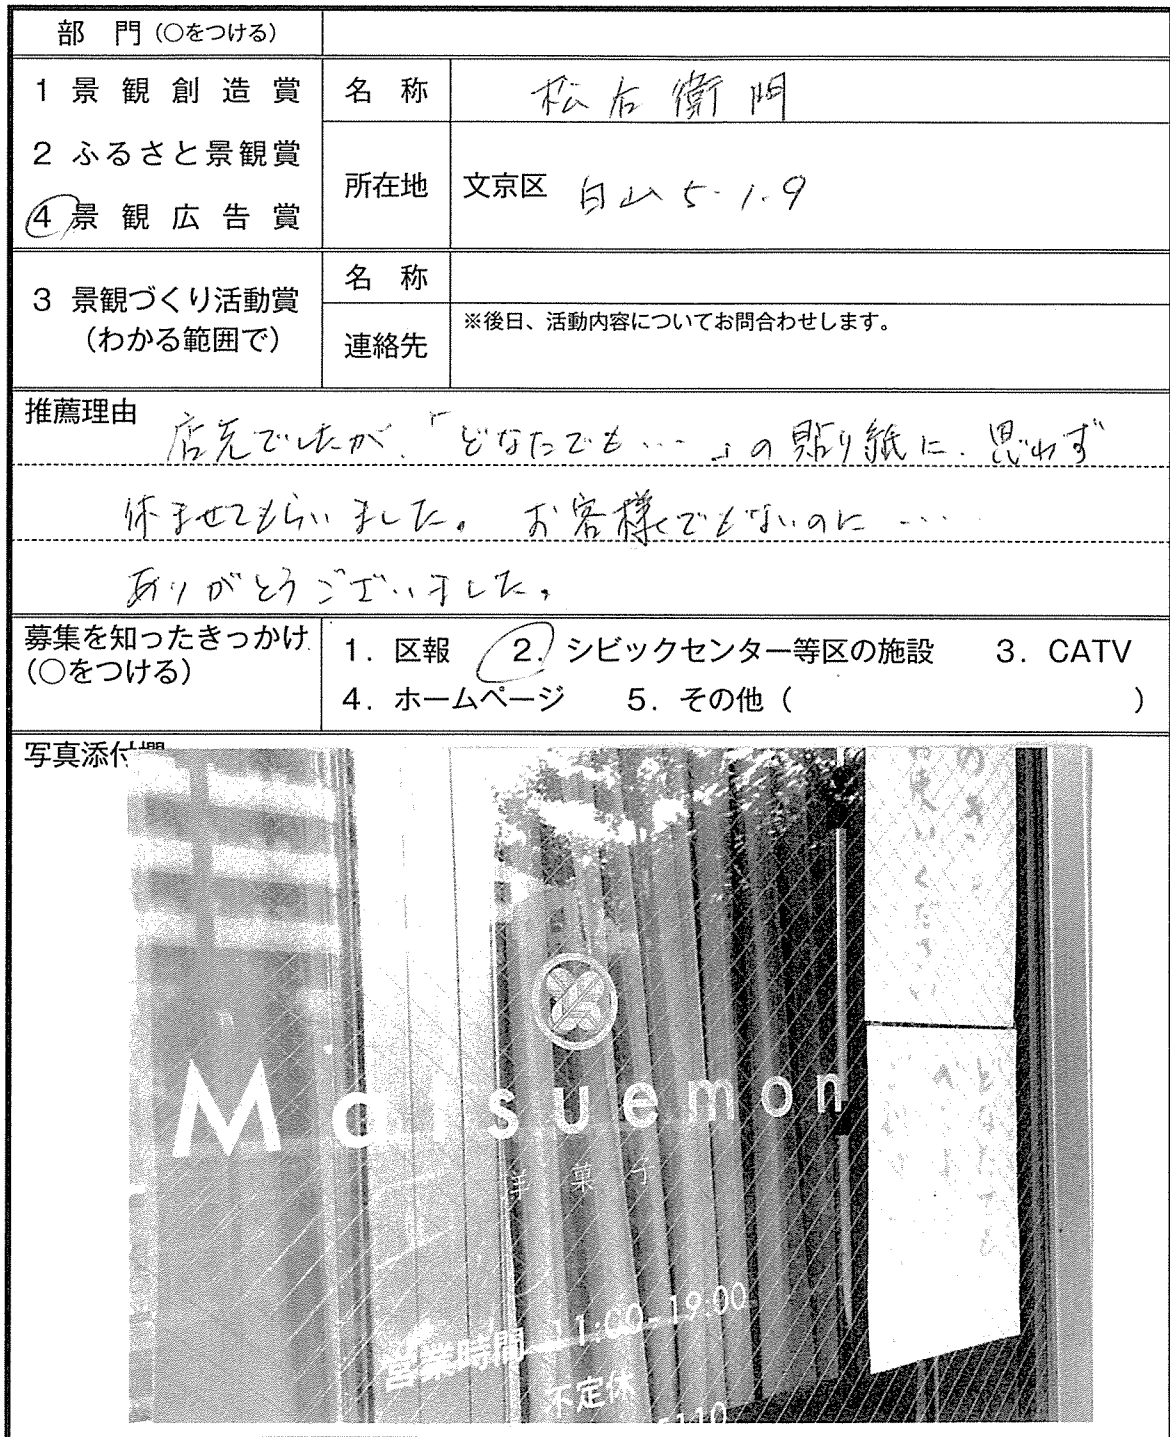 部 門（○をつける）
1 景観創造賞
2 ふるさと景観賞
4 景観広告賞
名 称 松右衛門
所在地 文京区 白山5-1-9
3 景観づくり活動賞
（わかる範囲で）
名 称
連絡先 ※後日、活動内容についてお問合わせします。
推薦理由
店先でしたが、「どなたでも…」の貼り紙に、思わず
休ませてもらいました。お客様でもないのに…
ありがとうございました。
募集を知ったきっかけ
（○をつける）
1. 区報 2. シビックセンター等区の施設 3. CATV
4. ホームページ 5. その他（ ）
写真添付欄
Matsuemon
洋菓子
営業時間 11:00-19:00
不定休
-5110
どなたでも